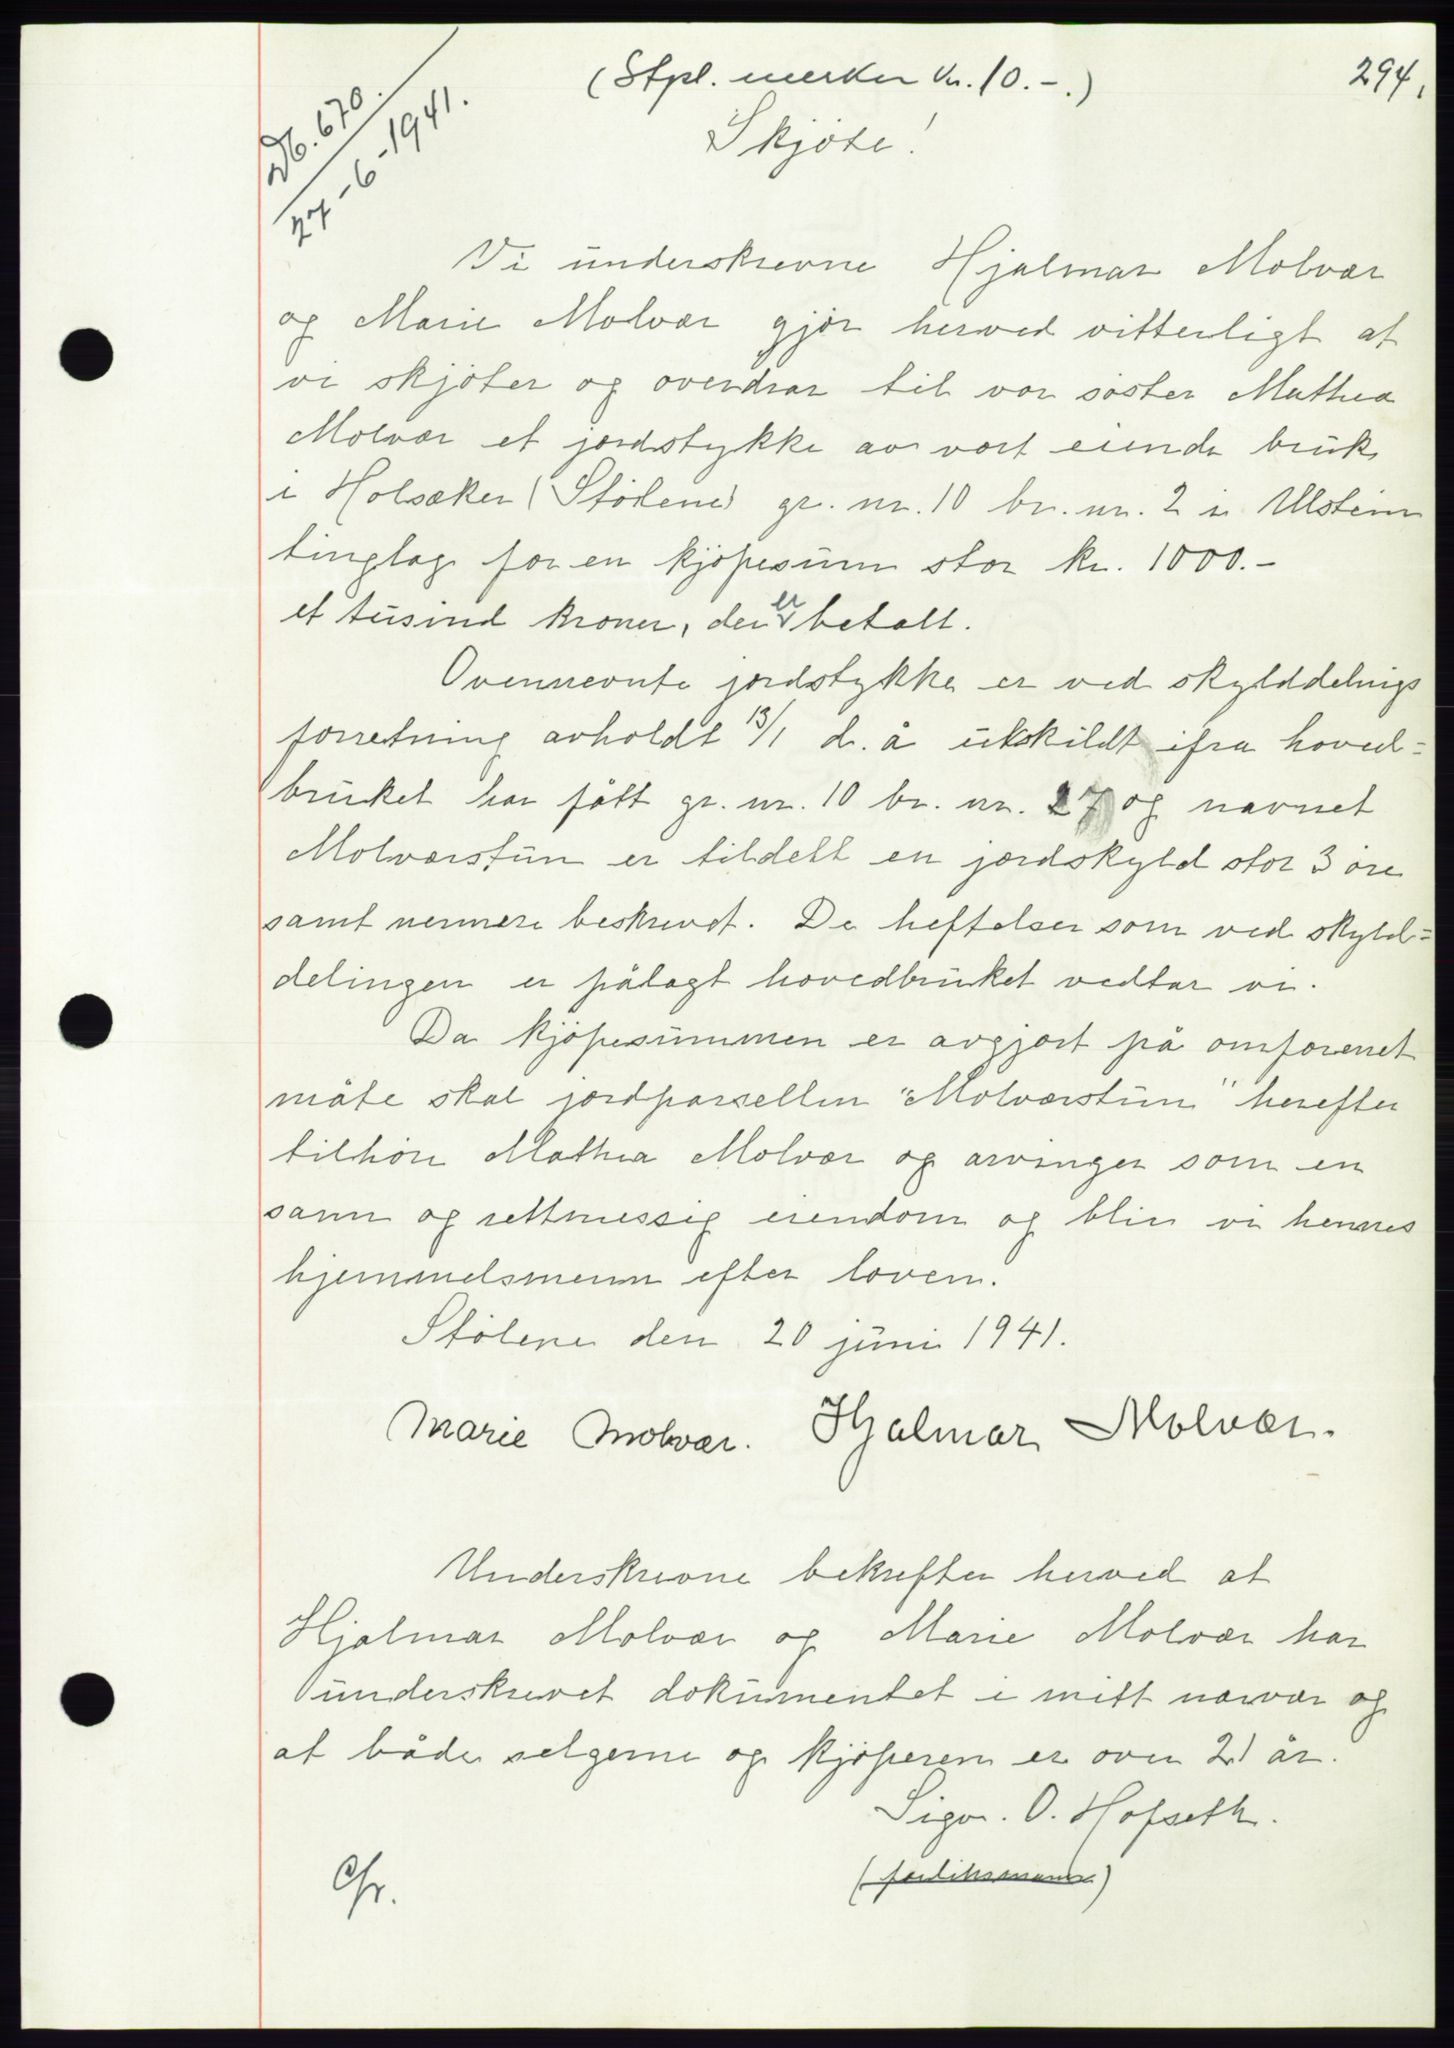 (Stpl. merker kr. 10.-.)
294.
Db. 670.
27-6-1941.
Skjöte!
Vi underskrevne Hjalmar Molvær
og Marie Molvær gjör herved vitterligt at
vi skjöter og overdrar til vor söster Mathea
Molvær et jordstykke av vort eiende bruk
i Holsæker (Stölene) gr. nr. 10 br. nr. 2 i Ulstein
tinglag for en kjöpesum stor kr. 1000.-
et tusind kroner, der er betalt.
Ovennevnte jordstykke er ved skylddelings
forretning avholdt 13/1 d. å utskildt ifra hoved=
bruket har fått gr. nr. 10 br. nr. 27 og navnet
Molværstun er tildelt en jordskyld stor 3 öre
samt nermere beskrevet. De heftelser som ved skyld=
delingen er pålagt hovedbruket vedtar vi.
Da kjöpesummen er avgjort på omforenet
måte skal jordparsellen "Molværstun" herefter
tilhöre Mathea Molvær og arvinger som en
sann og rettmessig eiendom og blir vi hennes
hjemmelsmenn efter loven.
Stölene den 20 juni 1941.
Marie Molvær. Hjalmar Molvær.
Underskrevne bekrefter herved at
Hjalmar Molvær og Marie Molvær har
underskrevet dokumentet i mitt nærvær og
at både selgerne og kjöperen er over 21 år.
Sigv. O. Hofseth.
(forliksmann)